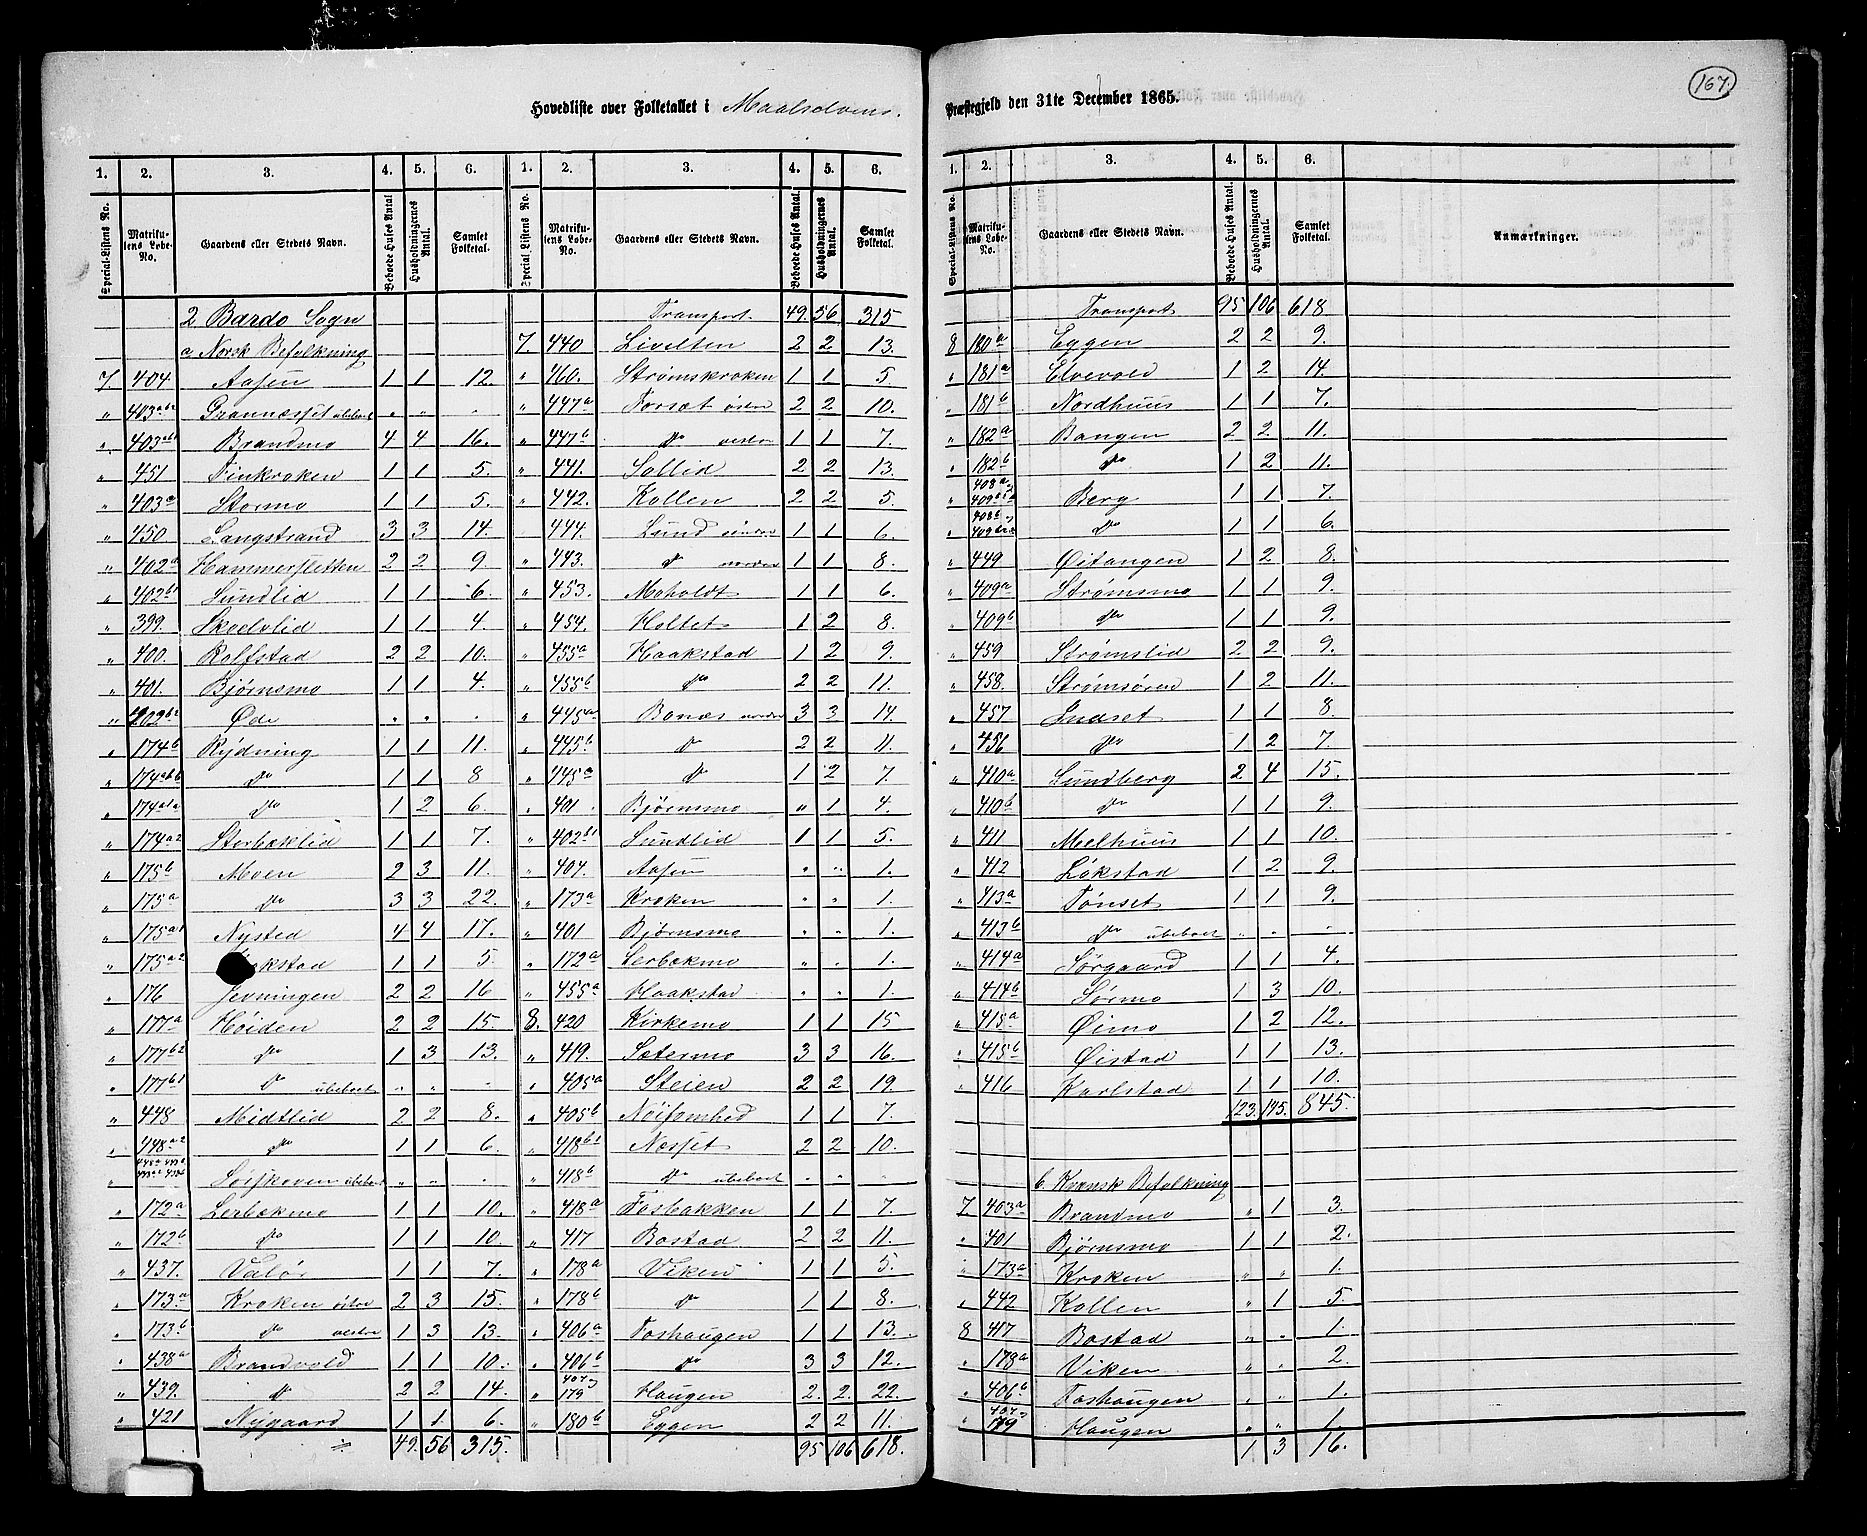 167.
Hovedliste over Folketallet i Maalselvens Præstegjeld den 31te December 1865.
1. 2. 3. 4. 5. 6. 1. 2. 3. 4. 5. 6.
Special-Listens No. Matrikulens Løbe-No. Gaardens eller Stedets Navn. Beboede Huses Antal Husholdningernes Antal. Samlet Folketal. Special Listens No. Matrikulens Løbe-No. Gaardens eller Stedets Navn. Beboede Huses Antal. Husholdningernes Antal. Samlet Folketal.
2 Bardo Sogn
a Norsk Befolkning
7. 404. Aasen 1 1 12.
" 403ab2 Grannæsset ubeboet " " .
" 403ab1 Brandmo 4 4 16.
" 451 Finkroken 1 1 5.
" 403a Stormo 1 1 5.
" 450 Langstrand 3 3 14.
" 402a Hammersletten 2 2 9
" 402b1 Sundlid 1 1 6.
" 399. Skoelvlid 1 1 4.
" 400. Rolfstad 2 2 10.
" 401. Bjørnsmo 1 1 4.
" 202b2 Øde . . .
" 174b Rydning 1 1 11.
" 174ab Do 1 1 8
" 174a1a Do 1 2 6.
" 174a2 Storbæklid 1 1 7.
" 175b Moen 2 3 11.
" 175a Do 3 3 22.
" 175a1 Nysted 4 4 17.
" 175a2 kstad 1 1 5.
" 176 Jevningen 2 2 16
" 177a Høiden 2 2 15.
" 177b2 Do 1 3 13.
" 177b1 Do ubeboet " " "
" 448 Midtlid 2 2 8.
" 448a2 Do 1 1 6.
" Sørskoven ubeboet " " "
" 172a Lerbækmo 1 1 10.
" 172b Do 1 1 10.
" 437. Valør 1 1 7.
" 173a Kroken östre 2 3 15.
" 173b Do vestre 1 3 13.
" 438a Brandvold 1 1 10.
" 439. Do 2 2 14.
" 421 Nygaard 1 1 6.
49. 56 315.
Transport. 49. 56 315
7. 440 Livelten 2 2 13.
" 460. Strømskroken 1 1 5
" 447a Forsæt östre 2 2 10.
" 447b Do vestre 1 1 7.
" 441. Sollid 2 2 13.
" 442. Kollen 2 2 5.
444. Lund söndre 1 1 6.
" 443. Do nordre 1 1 8.
" 453. Moholdt 1 1 6.
" 454. Holtet 1 2 8.
" 455a Haakstad 1 2 9.
" 455b Do 2 2 11.
" 445a Bonæs nordre 3 3 14.
" 445b Do 2 2 11.
" 445a Do 1 2 7.
" 401. Bjørnsmo " 1 4.
" 402b1 Sundlid 1 1 5.
" 404. Aasen " " 1.
" 173a Kroken " " 1.
" 401 Bjørnsmo " " 1.
" 172a Lerbækmo " " 1.
" 455a Haakstad " " 1.
8. 420 Kirkemo 1 1 15
" 419. Sætermo 3 3 16.
" 405a Steien 2 2 19.
" 405b Nöisomhed 1 1 7.
" 418b1 Næsset 2 2 10.
" 418b Do ubeboet " " "
" 418a Fosbakken 1 1 7.
" 417 Bostad 2 2 11.
" 178a Viken 1 1 5.
" 178b Do 1 1 8.
" 406a Foshaugen 1 1 13.
" 406b Do 3 3 12.
" 407 179 Haugen 2. 2. 22.
" 180b Eggen 2 2 11.
95 106 618.
1. 2. 3. 4. 5. 6.
Special-Listens No. Matrikulens Løbe-No. Gaardens eller Stedets Navn. Beboede Huses Antal. Husholdningernes Antal. Samlet Folketal. Anmærkninger.
Transport 95 106 618
8 180a Eggen 2 2 9.
" 181a Elvevold 1 2 14.
" 181b Nordhuus 1 1 7.
" 182a Bangen 2 2 11.
" 182b Do 1 2 11.
" 408a Berg 1 1 7.
" 408b Do 1 1 6.
" 449 Øitangen 1 2 8.
" 409a Strømsmo 1 1 9.
" 409b Do 1 1 9.
" 459 Strømslid 2 2 9.
" 458. Strømsøren 1 2 11.
" 457 Indset 1 1 8.
" 456 Do 1 2 7.
" 410a Lundberg 2 4 15.
" 410b Do 1 1 9.
" 411 Melhuus 1 1 10.
" 412 Løkstad 1 2 9.
" 413a Tønset 1 1 9.
" 413b Do ubeboet " " "
" 414a Sørgaard 1 1 4.
" 414b Sørmo 1 3 10.
" 415a Øimo 1 2 12.
" 415b Øistad 1 1 13.
" 416 Karlstad 1 1 10.
123. 145. 845.
b. Kvænsk Befolkning
7 403a Brandmo " 1 3.
" 401 Bjørnsmo 1 1 2.
" 173a Kroken " " 1.
" 442 Kollen " 1 5.
8 417 Bostad " " 1.
" 178a Viken " " 2.
" 406b Foshaugen " " 1.
" 407 179 Haugen " " 1.
1 3 16.